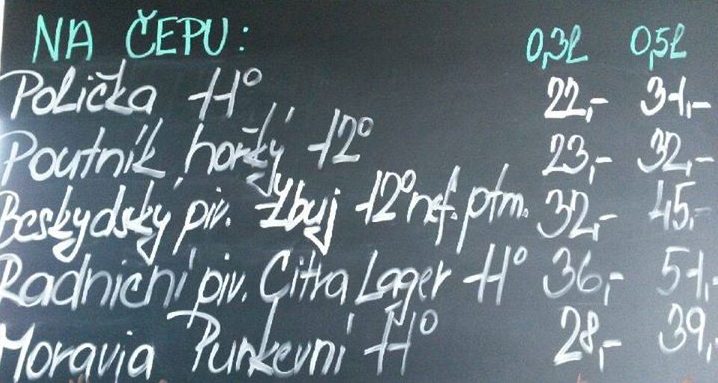 NA ČEPU: 0,3l 0,5l
Polička 11° 22,- 31,-
Poutník hořký 12° 23,- 32,-
Beskydský piv. Zbuj 12° nef. ptm. 32,- 45,-
Radniční piv. Citra Lager 11° 36,- 51,-
Moravia Punkevní 11° 28,- 39,-